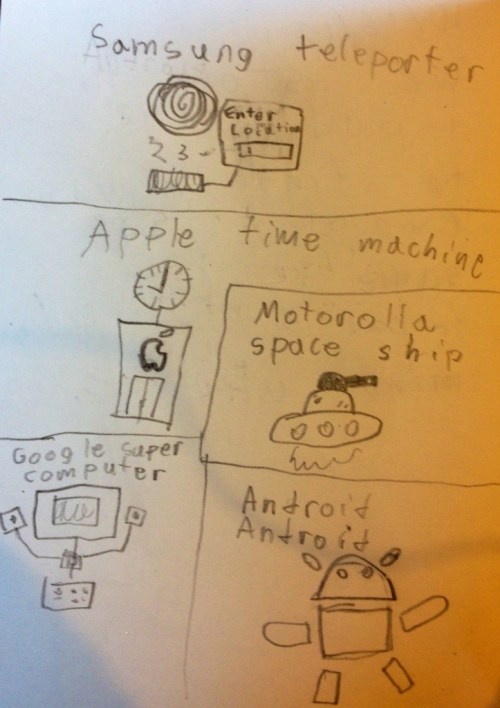 Samsung teleporter
Enter
Location
2 3
Apple time machine
Motorolla
space ship
Google super
computer
Antroit
Antroit